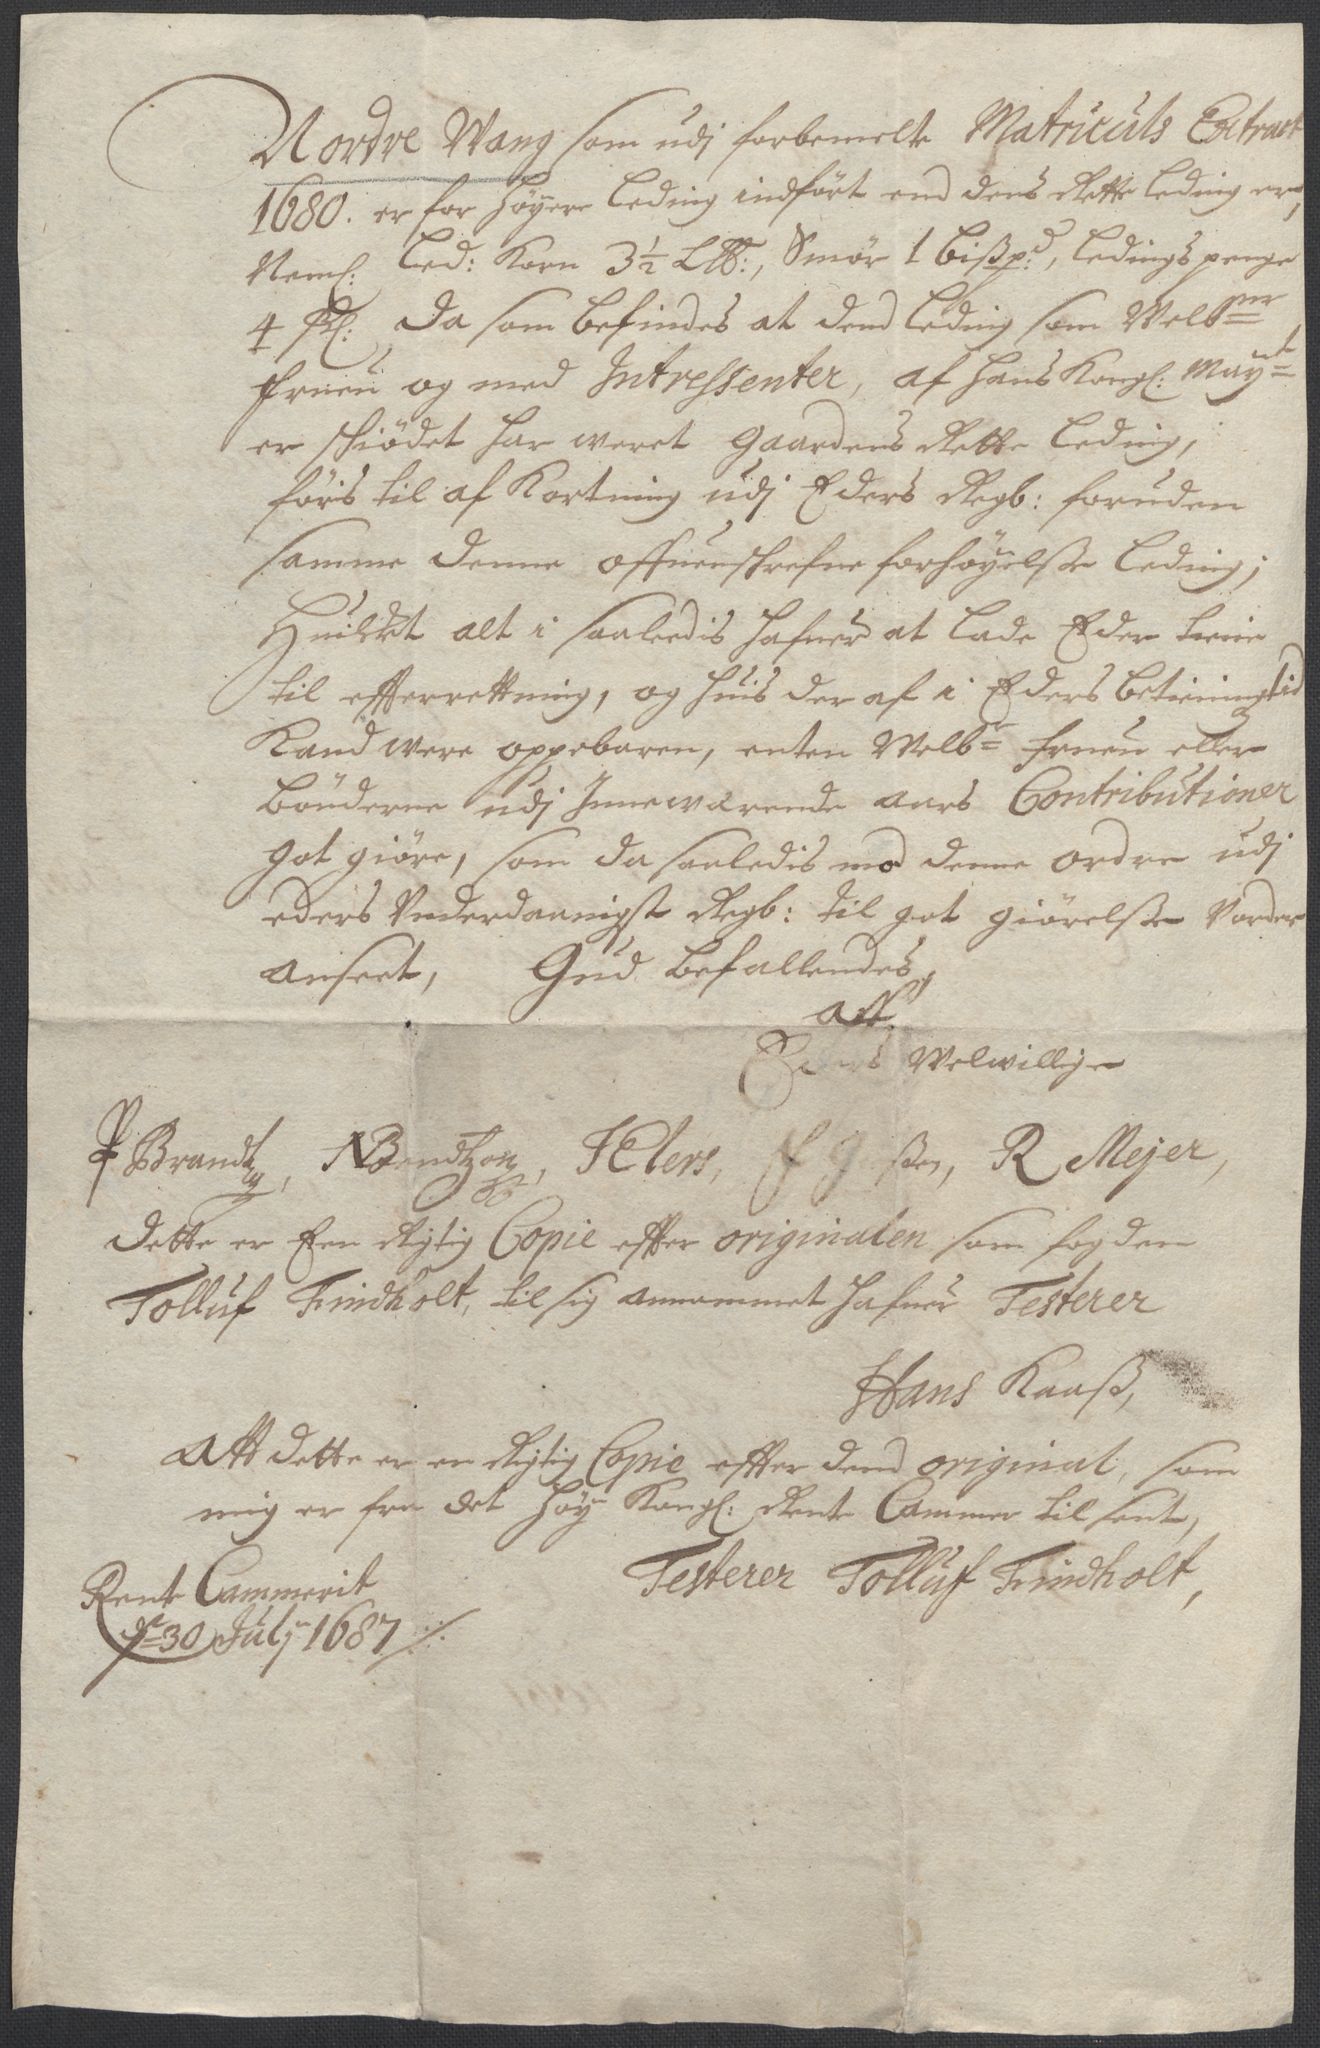 Nordre Wang som udj forbemelte Matriculs Extract
1680. er for høyere Leding indført end dens Rette Leding er,
Neml: Led: Korn 3½ L℔:, Smør 1 Bißp:d, Ledings penge
4 ßl: Da som befindes at dend Leding som Velbner
Fruen og med Intressenter, af Hans Kongl: Mayt
er skiødet har weret Gaardens Rette Leding,
føris til af Kortning udj Eders Regb: foruden
samme denne offuenschrefne forhøyelsse Leding;
Huilket alt i saaledis hafuer at lade Eder tiene
til effterrettning, og huis der af i Eders betienings tid
Kand were oppebaren, enten Welbr Fruen eller
bønderne udj Inneværende aars Contributioner
got giøre, som da saaledis med denne ordre udj
eders Underdannigst Regb: til got giørelsse Vorder
anseet, Gud befallendes,
Aff
Eders Welwillige
P Brandt, N Bendtzon, H Elers, R Mejer,
Dette er Een Rigtig Copie effter originalen som fogden
Tolluf Findholt, til sig annammet hafuer Testerer
Hans Kaaß,
Att dette er en Rigtig Copie effter dend original, som
mig er fra det høy Kongl: Rente Cammer til sent,
Testerer Tolluf Findholt,
Rente Cammerit
de 30 Julj 1687